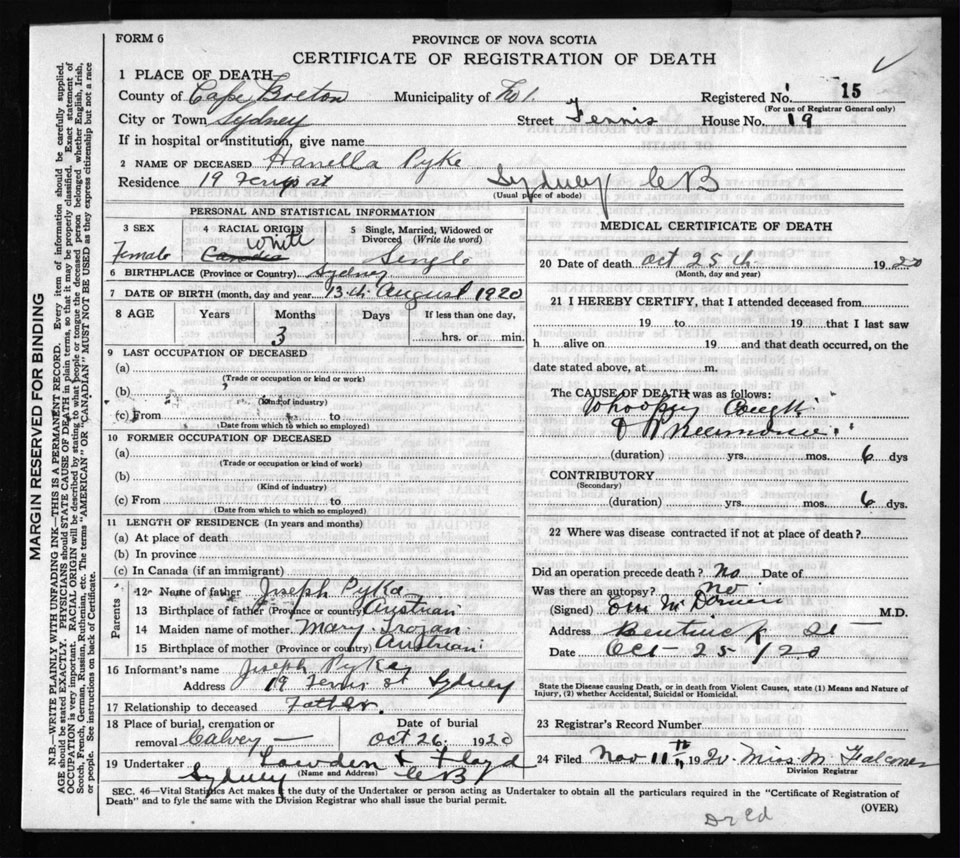 FORM 6
PROVINCE OF NOVA SCOTIA
CERTIFICATE OF REGISTRATION OF DEATH
1 PLACE OF DEATH—
County of Cape Breton Municipality of No 1. Registered No. 15
(For use of Registrar General only)
City or Town Sydney Street Ferris House No. 19
If in hospital or institution, give name
2 NAME OF DECEASED Hanella Pyke
Residence 19 Ferris st Sydney CB
(Usual place of abode)
MARGIN RESERVED FOR BINDING
N.B.—WRITE PLAINLY WITH UNFADING INK—THIS IS A PERMANENT RECORD. Every item of information should be carefully supplied.
AGE should be stated EXACTLY. PHYSICIANS should STATE CAUSE OF DEATH in plain terms, so that it may be properly classified. Exact statement of
OCCUPATION is very important. RACIAL ORIGIN will be described by stating to what people or tongue the deceased person belonged whether English, Irish,
Scotch, French, German, Russian, Ruthenian, etc. The terms "AMERICAN" OR "CANADIAN" MUST NOT BE USED as they express citizenship but not a race
or people. See instructions on back of Certificate.
PERSONAL AND STATISTICAL INFORMATION
3 SEX 4 RACIAL ORIGIN 5 Single, Married, Widowed or
Divorced (Write the word)
White
Female Single
6 BIRTHPLACE (Province or Country) Sydney
7 DATE OF BIRTH (month, day and year 13th August 1920
8 AGE Years Months Days If less than one day,
3 hrs. or min.
9 LAST OCCUPATION OF DECEASED
(a)
(Trade or occupation or kind or work)
(b)
(Kind of industry)
(c) From to
(Date from which to which so employed)
10 FORMER OCCUPATION OF DECEASED
(a)
(Trade or occupation or kind of work)
(b)
(Kind of industry)
(c) From to
(Date from which to which so employed)
11 LENGTH OF RESIDENCE (In years and months)
(a) At place of death
(b) In province
(c) In Canada (if an immigrant)
Parents
12 Name of father Joseph Pyka
13 Birthplace of father (Province or country) Austrian
14 Maiden name of mother Mary Trojan
15 Birthplace of mother (Province or country) Austrian
16 Informant's name Joseph Pyke
Address 19 Ferris st Sydney
17 Relationship to deceased Father.
18 Place of burial, cremation or Date of burial
removal Calvey — Oct 26 1920
19 Undertaker Lowden & Floyd
(Name and Address)
Sydney CB
MEDICAL CERTIFICATE OF DEATH
20 Date of death Oct 25th 1920
(Month, day and year)
21 I HEREBY CERTIFY, that I attended deceased from
19 to 19 that I last saw
h alive on 19 and that death occurred, on the
date stated above, at m.
The CAUSE OF DEATH was as follows:
Whooping Cough
& Pneumonia
(duration) yrs. mos. 6 dys
CONTRIBUTORY
(Secondary)
(duration) yrs. mos. 6 dys.
22 Where was disease contracted if not at place of death?
Did an operation precede death? No Date of
Was there an autopsy? No
(Signed) M.D.
Address Bentinck St —
Date Oct 25/20
State the Disease causing Death, or in death from Violent Causes, state (1) Means and Nature of
Injury, (2) whether Accidental, Suicidal or Homicidal.
23 Registrar's Record Number
24 Filed Nov 11th 1920 Miss M Falconer
Division Registrar
SEC. 46—Vital Statistics Act makes it the duty of the Undertaker or person acting as Undertaker to obtain all the particulars required in the "Certificate of Registration of
Death" and to fyle the same with the Division Registrar who shall issue the burial permit.
(OVER)